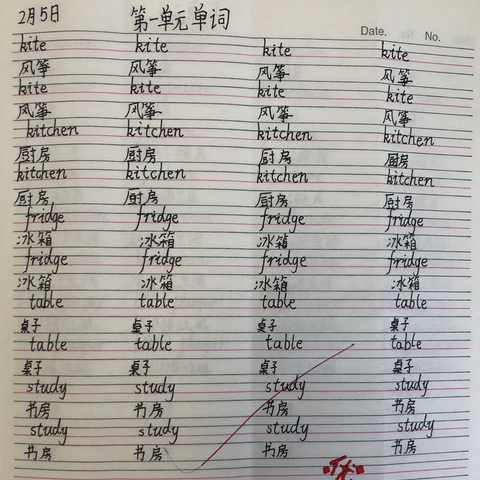 2月5日 第一单元单词
Date. No.
kite kite kite kite
风筝 风筝 风筝 风筝
kite kite kite kite
风筝 风筝 风筝 风筝
kitchen kitchen kitchen kitchen
厨房 厨房 厨房 厨房
kitchen kitchen kitchen kitchen
厨房 厨房 厨房 厨房
fridge fridge fridge fridge
冰箱 冰箱 冰箱 冰箱
fridge fridge fridge fridge
冰箱 冰箱 冰箱 冰箱
table table table table
桌子 桌子 桌子 桌子
table table table table
桌子 桌子 桌子 桌子
study study study study
书房 书房 书房 书房
study study study study
书房 书房 书房 书房
优